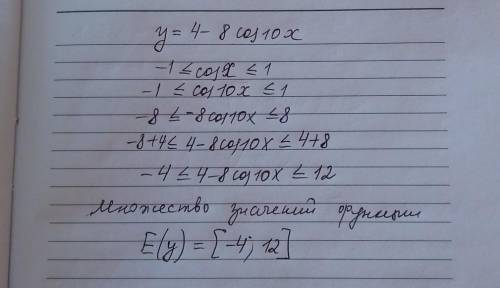 y = 4 - 8 cos10x
-1 ≤ cosx ≤ 1
-1 ≤ cos10x ≤ 1
-8 ≤ -8cos10x ≤ 8
-8+4 ≤ 4-8cos10x ≤ 4+8
-4 ≤ 4-8cos10x ≤ 12
Множество значений функции
E(y) = [-4; 12]